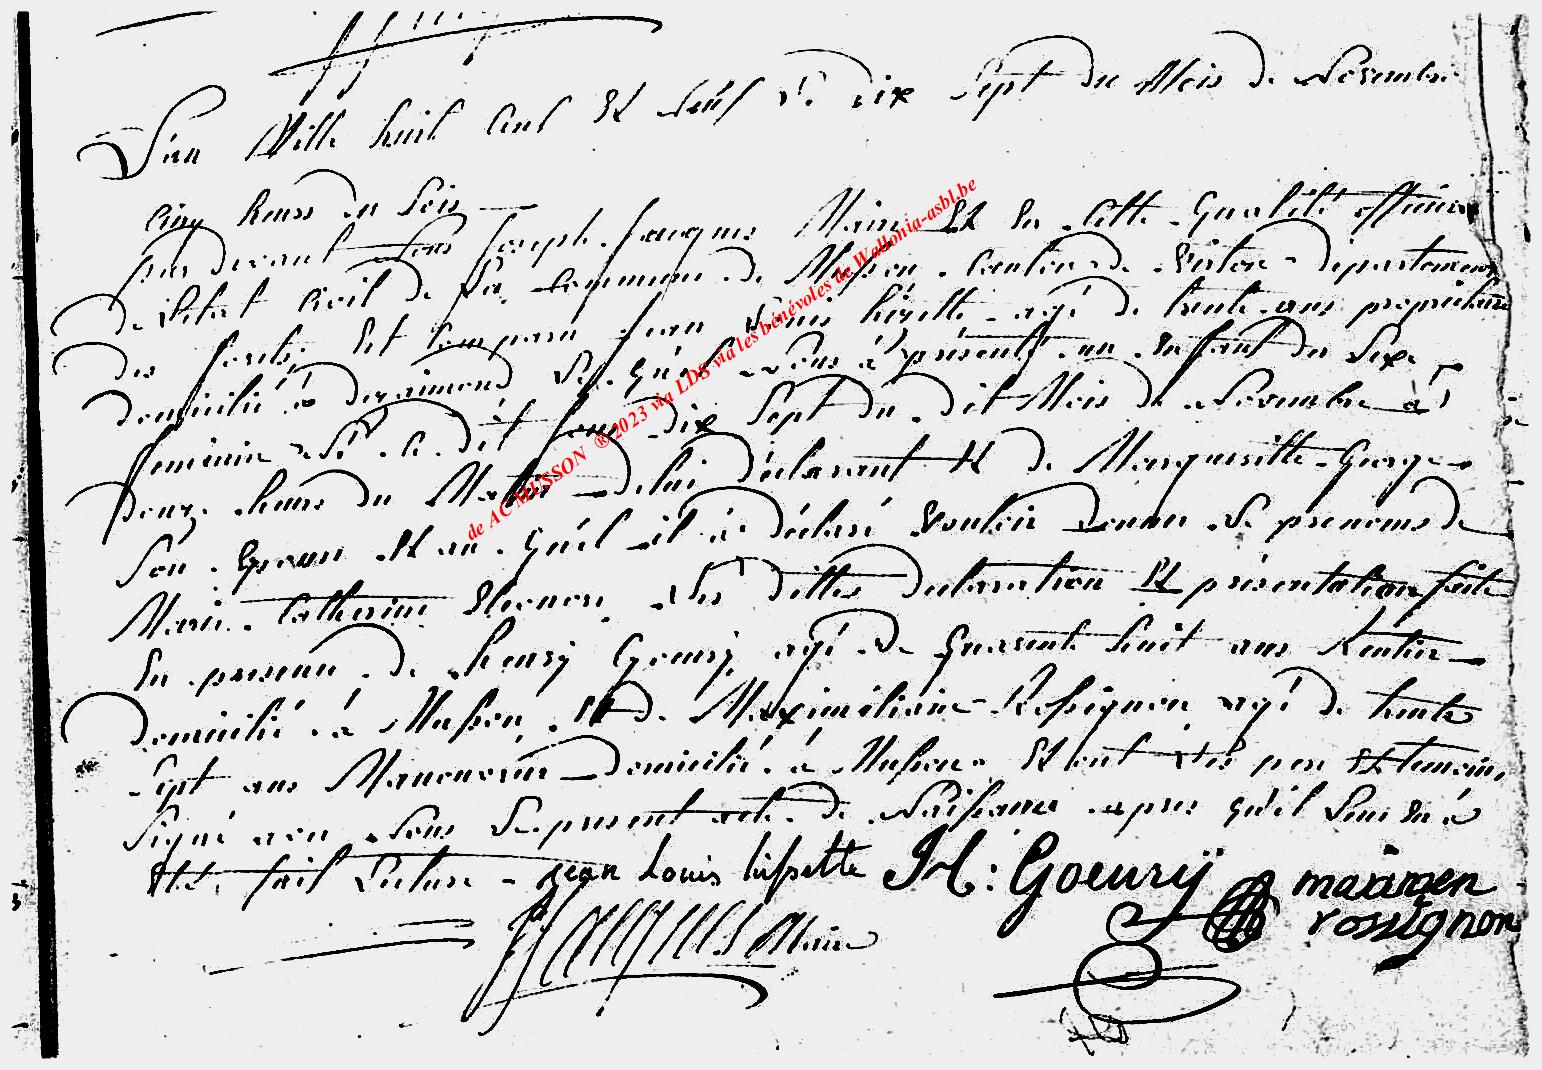 L'an Mille huit Cent Et Neuf Le dix Sept du Mois de Novembre
Cinq heures du Soir
par devant Nous Joseph Jacques Maire Et En Cette Qualité officier
de l'état Civil de La Commune de Musson Canton de Virton departement
des forets, Est Comparu Jean Louis hizette agé de trente ans propriétaire
domicilié à Lequel Nous à présenté un Enfant du Sexe
feminin Né Ce dit Jour dix Sept du dit Mois de Novembre à
heures du Matin de lui déclarant Et de Marguerite George
Son Epouse Et au Quel il à déclaré Vouloir donner Le prenoms de
Marie Catherine Eleonore, Les dittes declaration Et présentation faite
En presence de henry Goeury agé de quarente huit ans Rentier
domicilié à Musson, Et de Maximilien Rossignon agé de trente
Sept ans Manouvrier domicilié à Musson Et ont Les pere Et temoins
Signé avec Nous Le present acte de Naissance apres qu'il Leur En à
Eté fait Lecture - jean Louis hissette H: Goeurÿ maximen
rossignon
JJacques Maire
de AC MUSSON ®2023 via LDS via les bénévoles de Wallonia-asbl.be